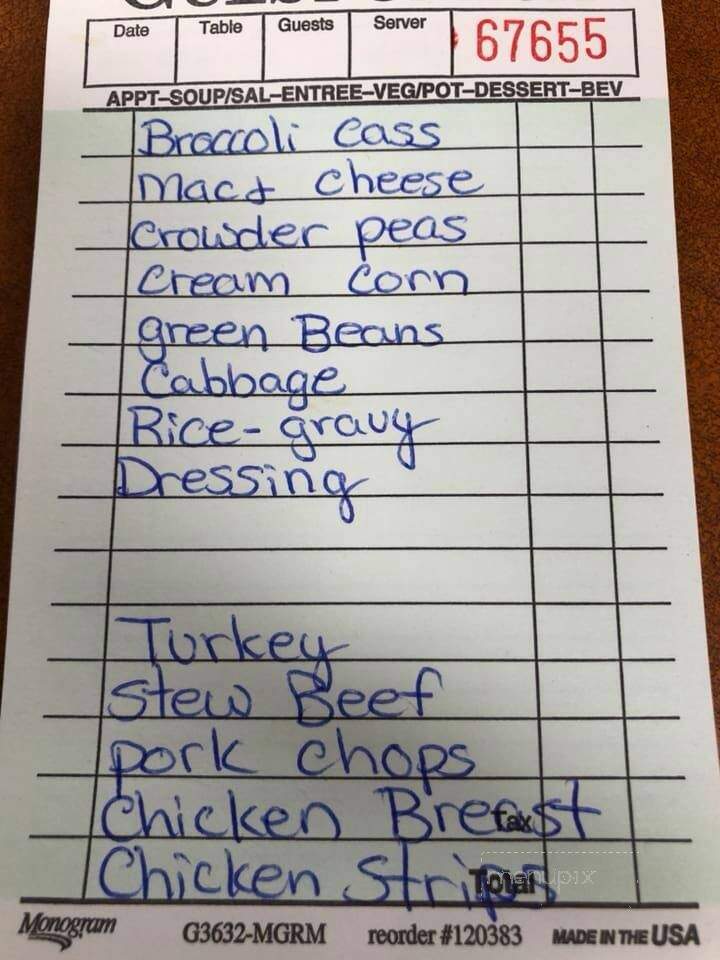 Date Table Guests Server 67655
APPT–SOUP/SAL–ENTREE–VEG/POT–DESSERT–BEV
Broccoli Cass
Mac & Cheese
Crowder peas
Cream Corn
green Beans
Cabbage
Rice-gravy
Dressing
Turkey
Stew Beef
pork chops
Chicken Breast
Tax
Chicken Strips
Total
menupix
Monogram G3632-MGRM reorder #120383 MADE IN THE USA